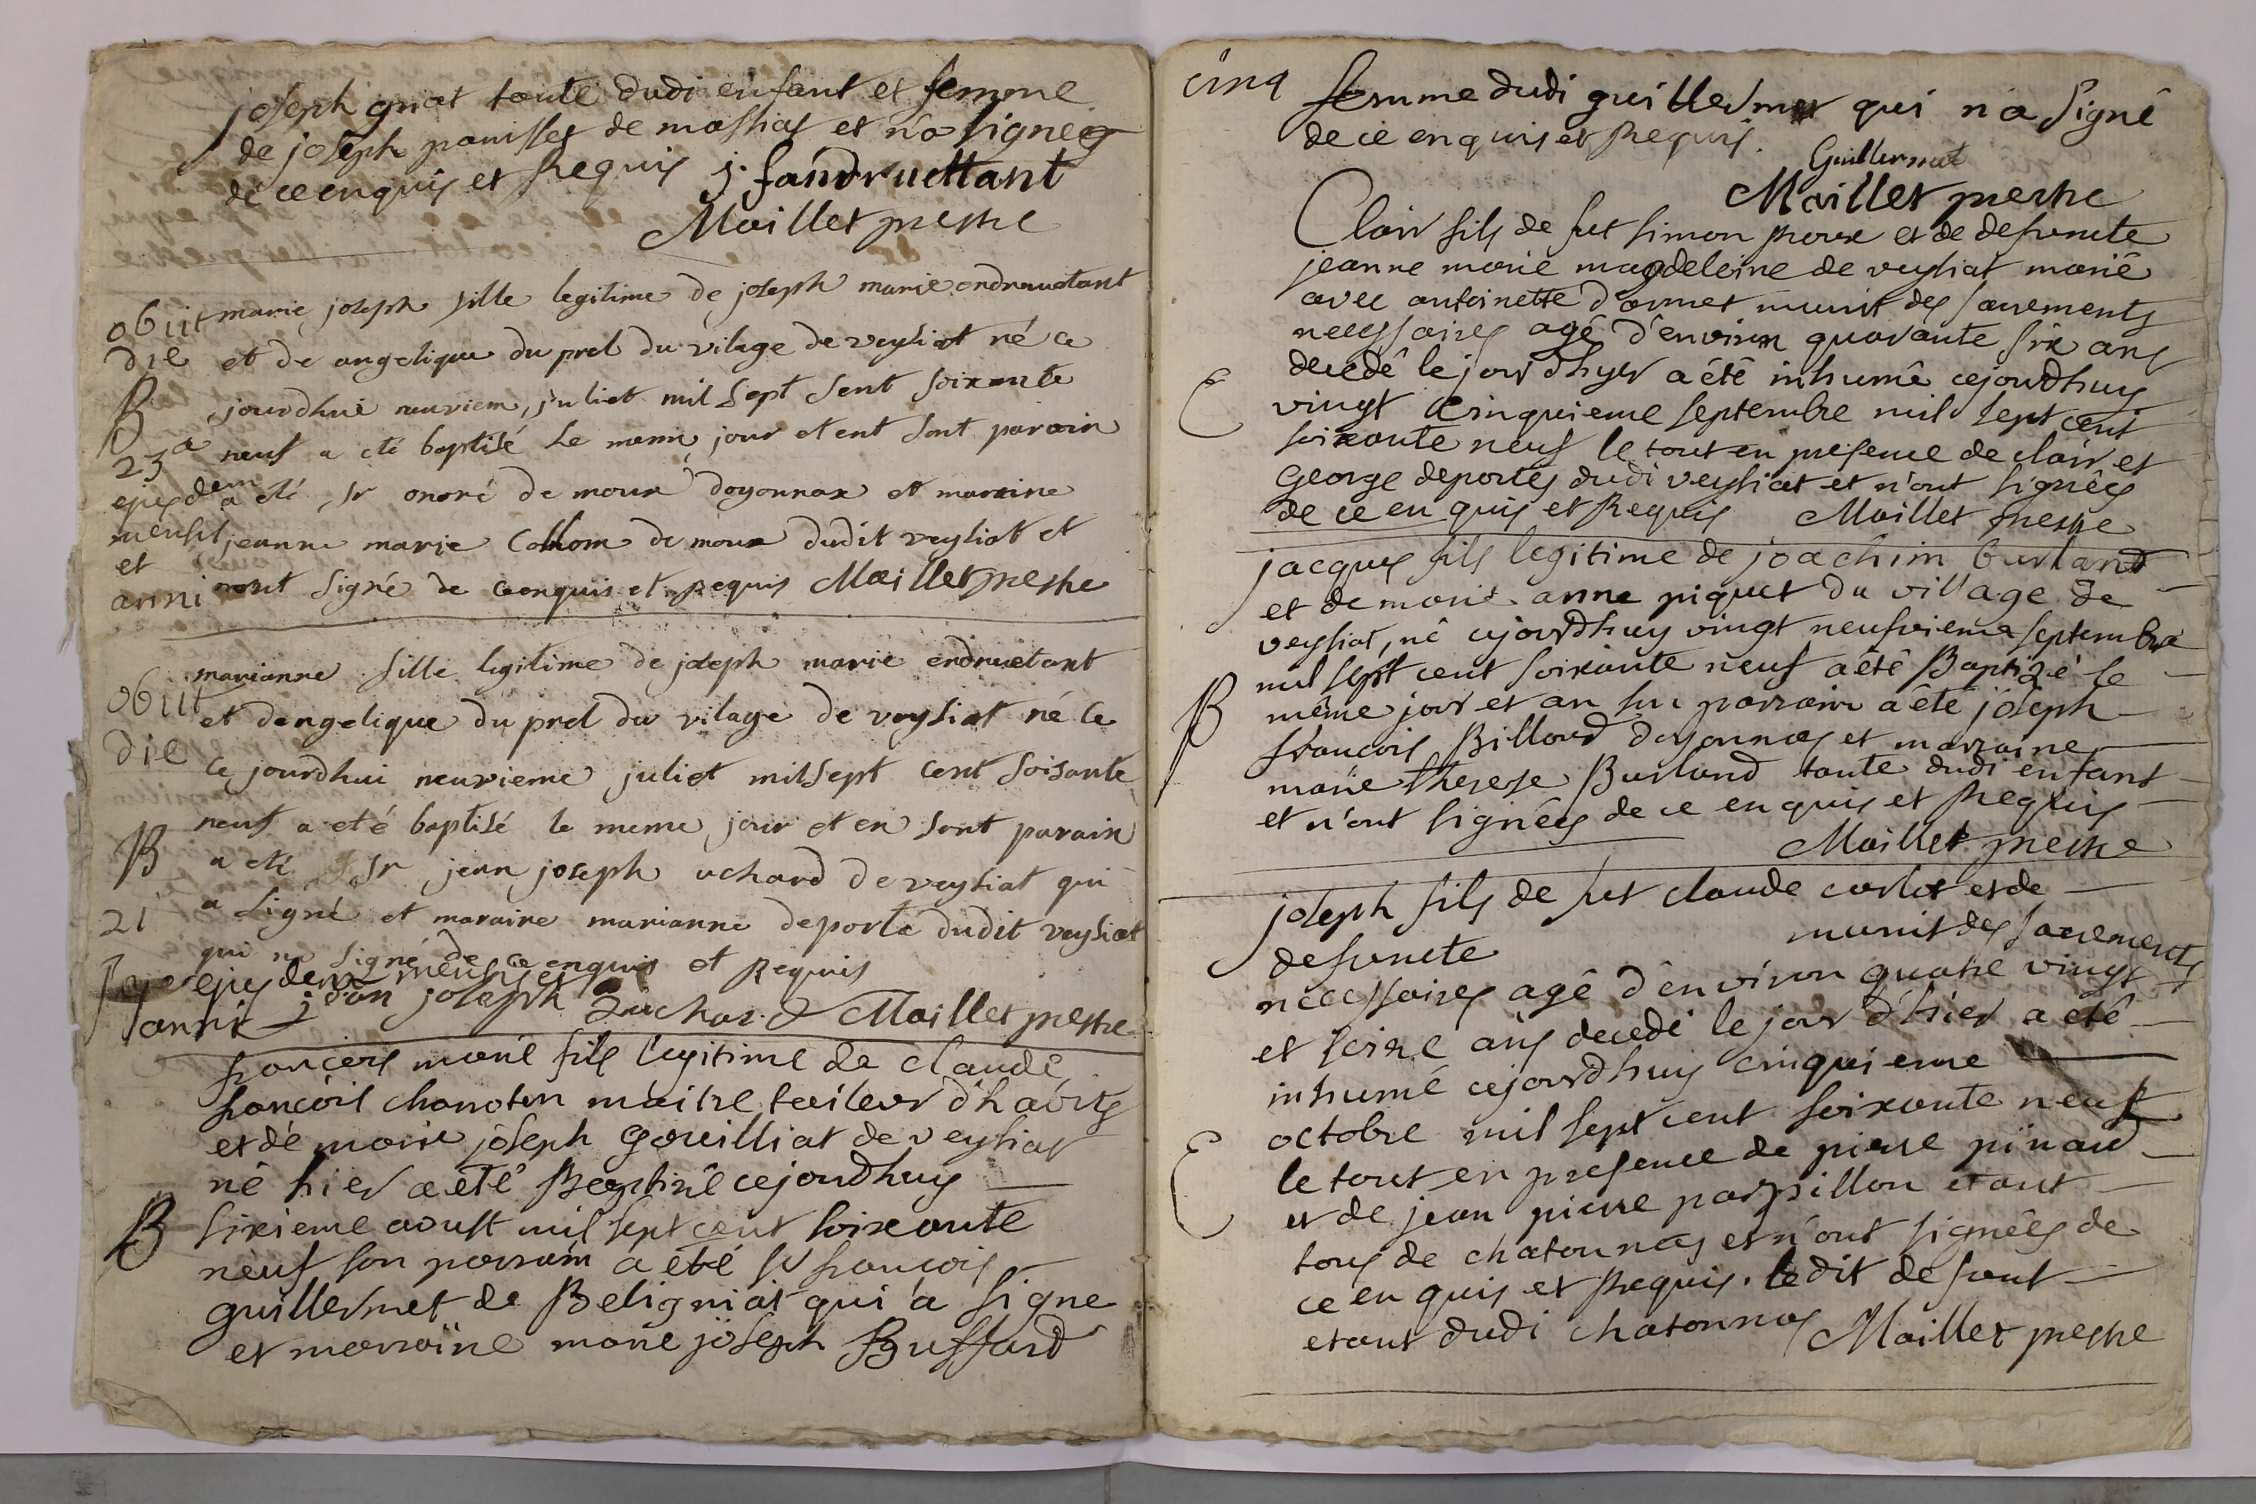 joseph gnat tante dudi enfant et femme
de joseph panisset de massiat et n'a signeés
de ce enquis et Requis j. f andruettant
Maillet prestre
marie joseph fille legitime de joseph marie endruetant
obiit
die et de angelique du prel du vilage de veysiat né ce
B jourdhui neuviem, juliet mil sept sent soixante
23a neuf a eté baptisé le meme jour et ent sont parain
ejusdem a eté sr onoré de mour doyonnax et maraine
mensis jeanne marie Collom de moux dudit veysiat et
et
anni nont signé de ceenquis et Requis Maillet prestre
marianne fille legitime de joseph marie endruetant
obiit et dangelique du prel du vilage de veysiat né le
die ce jourdhui neuvieme juliet mil sept cent soisante
B neuf a eté baptisé le meme jour et en sont parain
a eté sr jean joseph uchard de veysiat qui
21 a signé et maraine marianne deporte dudit veysiat
qui na signé de ce enquis et Requis
ejusdem mensis et
anni jean joseph Maillet prestre
françois marie fils legitime de claude
françois chanoten maitre taileur d'habits
et dé marie joseph Gouilliat de veysiat
né hier a eté Baptisé cejourdhuy
B sixieme aoust mil sept cent soixante
neuf son parrain a eté sr françois
guillermet de Beligniat qui a signe
et marraine marie joseph Buffard
cinq femme dudi guillermet qui n'a signé
de ce enquis et Requis.
Guillermet
Maillet prestre
Clair fils de fut simon proux et de defuncte
jeanne marie magdeleine de veysiat marié
avec antoinette d'ormet munit des sacrements
necessaires agé d'environ quarante six ans
decedé le jour d'hyer a été inhumé cejourdhuy
E vingt cinquieme septembre mil sept cent
soixante neuf le tout en presence de clair et
George deportes dudi veysiat et n'ont signées
de ce enquis et Requis Maillet prestre
jacques fils legitime de joachim burland
et de marie anne piquet du village de
veysiat, né cejourdhuy vingt neufvieme septembre
mil sept cent soixante neuf a été Baptizé le
B même jour et an son parrain a été joseph
françois Billoud doyonnas et marraine
marie therese Burland tante dudi enfant
et n'ont signées de ce enquis et Requis
Maillet prestre
joseph fils de fut claude carlet et de
defuncte munit des sacrements
necessaires agé d'environ quatre vingt
et seize ans decedé le jour d'hier a été
inhumé cejourdhuy cinquieme
octobre mil sept cent soixante neuf
E le tout en presence de pierre pinard
et de jean pierre parpillon etant
tous de chatonnas et n'ont signées de
ce enquis et Requis. ledit defunt
etant dudi chatonnas Maillet prestre